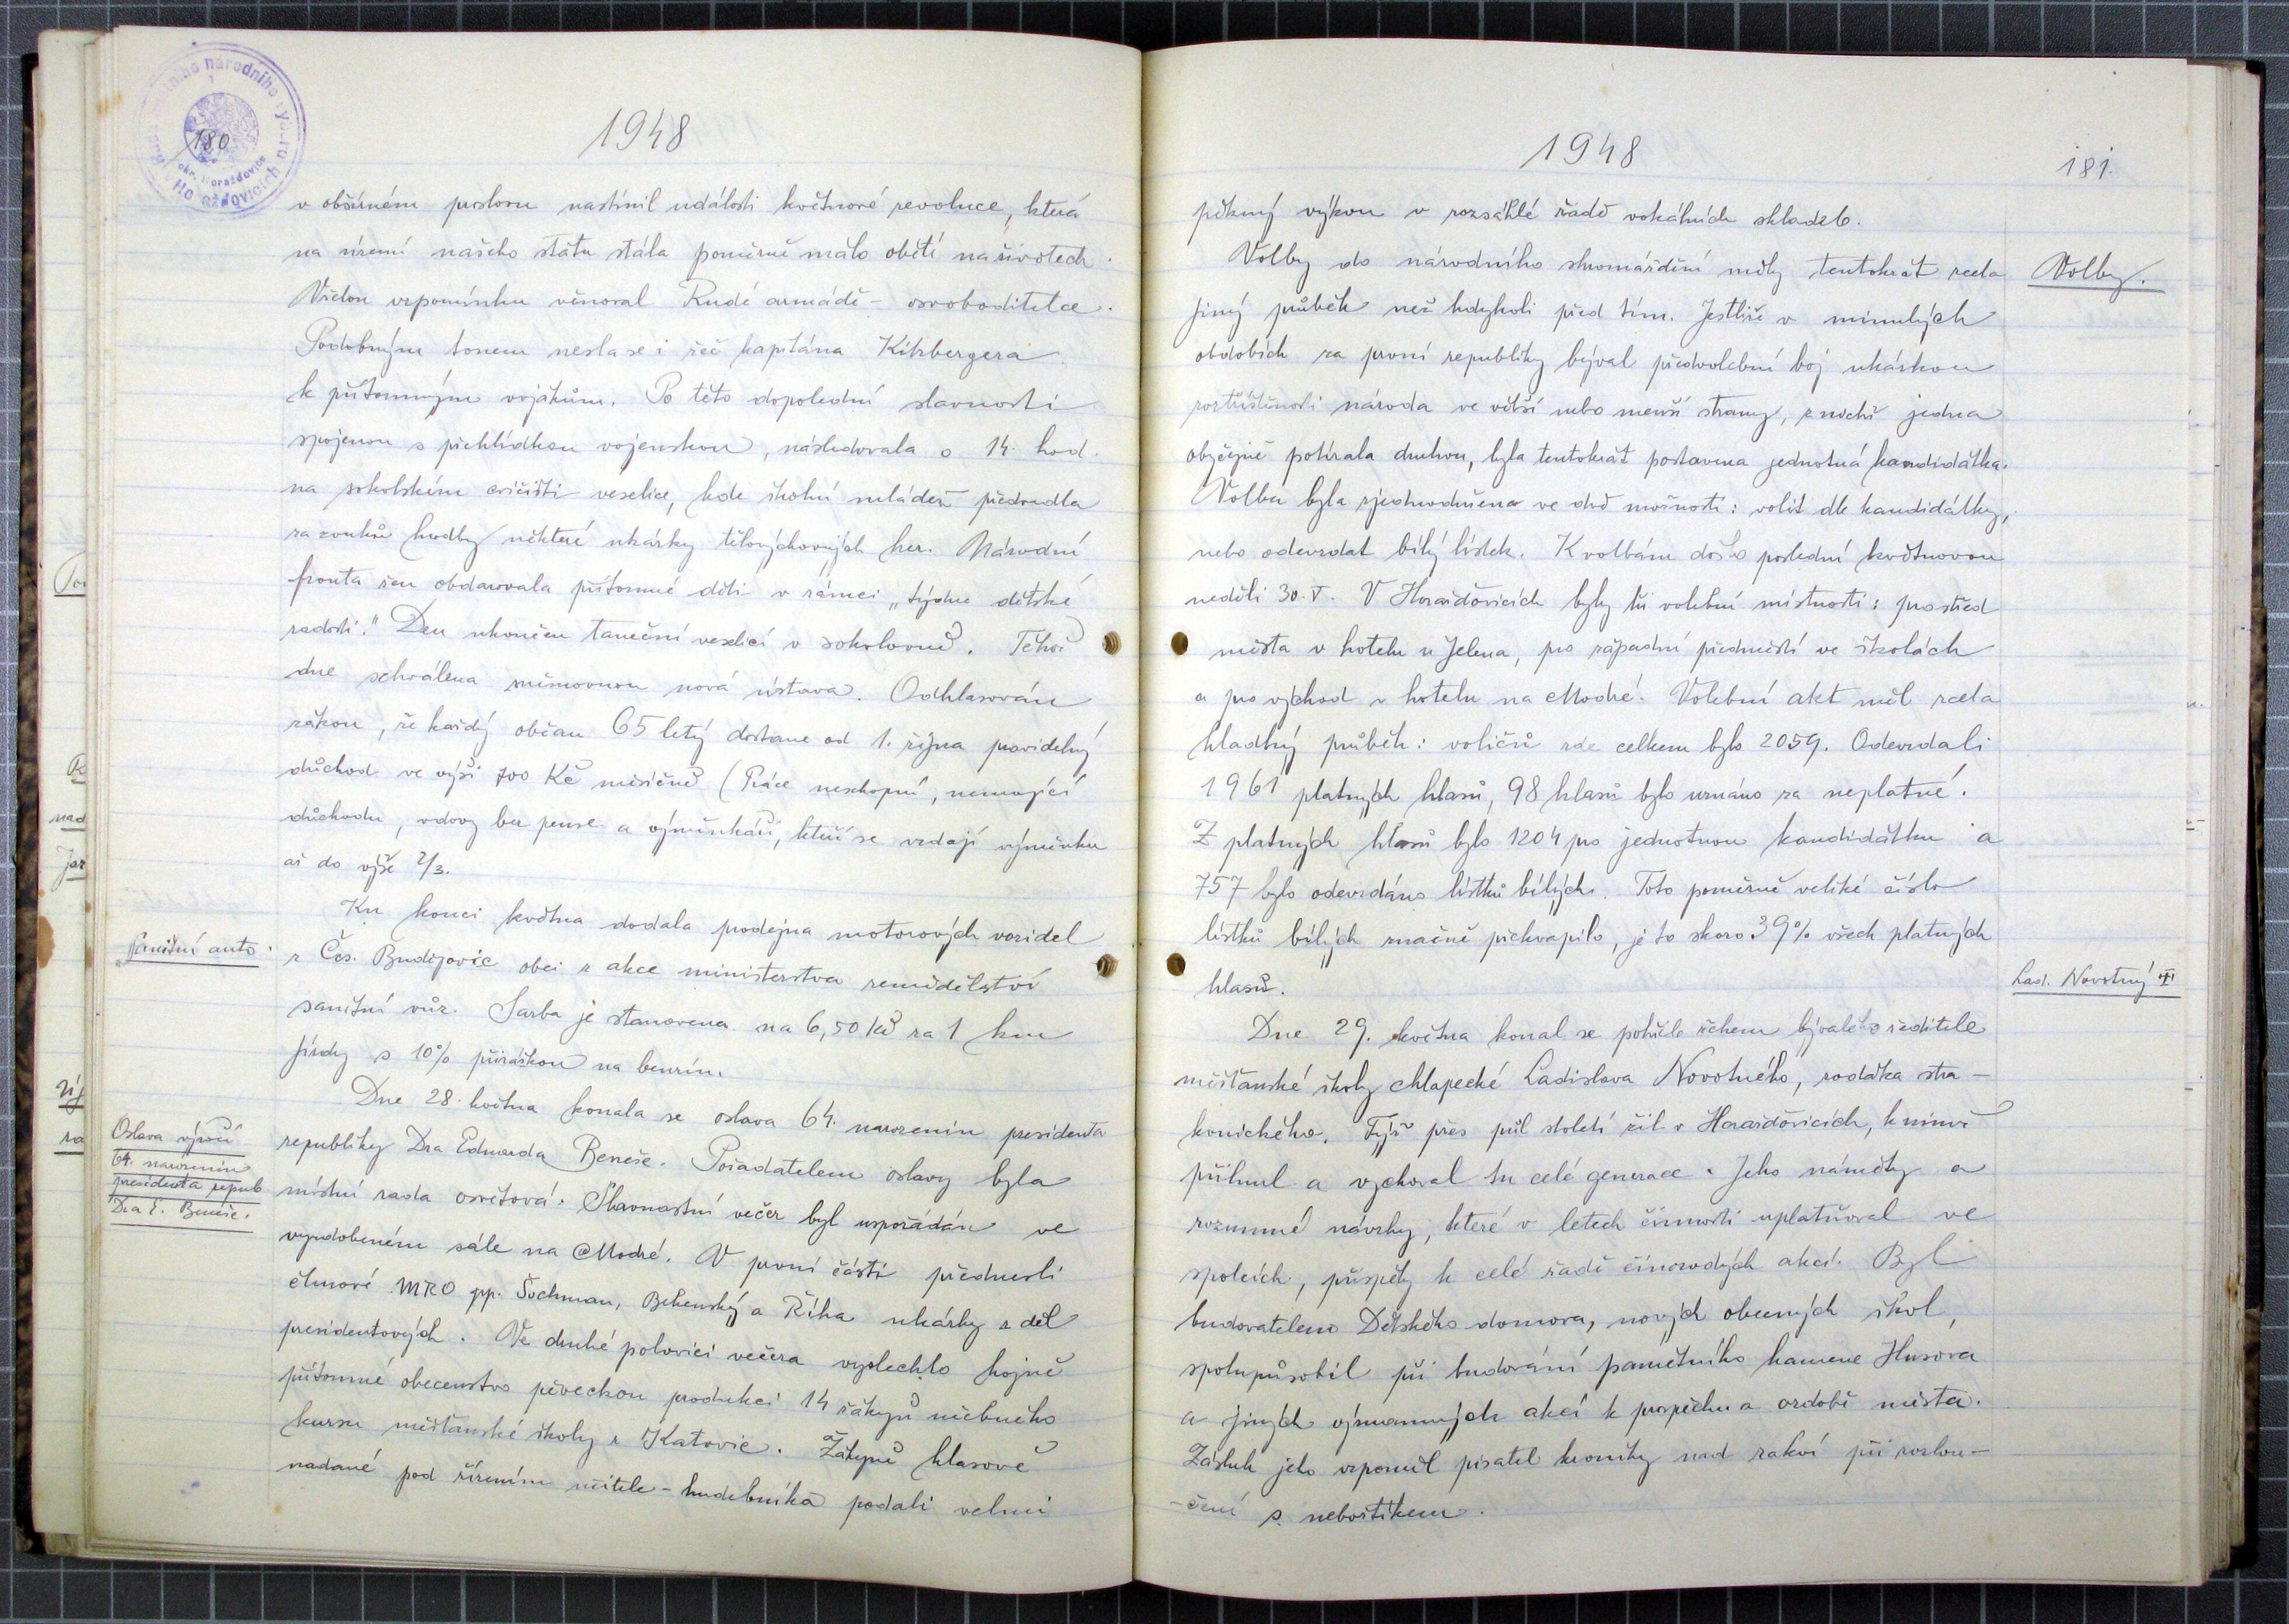 180
1948
v obšírném proslovu nastínil události květnové revoluce, která
na území našeho státu stála poměrně málo obětí na životech.
Vřelou vzpomínku věnoval Rudé armádě - osvoboditelce.
Podobným tonem nesla se i řeč kapitána Kitzbergera
k přítomným vojákům. Po této dopolední slavnosti
spojenou s přehlídkou vojenskou, následovala o 14. hod.
na sokolském cvičišti veselice, kde školní mládež předvedla
za zvuků hudby některé ukázky tělovýchovných her. Národní
fronta žen obdarovala přítomné děti v rámci „týdne dětské
radosti." Den ukončen taneční veselicí v sokolovně. Téhož
dne schválena sněmovnou nová ústava. Odhlasován
zákon, že každý občan 65 letý dostane od 1. října pravidelný
důchod ve výši 700 Kč měsíčně (Práce neschopní, nemající
důchodu, vdovy bez pense a výměnkáři, kteří se vzdají výměnku
až do výše 2/3.
Sanitní auto.
Ku konci května dodala prodejna motorových vozidel
z Čes. Budějovic obci z akce ministerstva zemědělství
sanitní vůz. Sazba je stanovena na 6,50 Kčs za 1 km
jízdy s 10% přirážkou na benzin.
Oslava výročí
64. narozenin
presidenta repub
Dra E. Beneše.
Dne 28. května konala se oslava 64. narozenin presidenta
republiky Dra Eduarda Beneše. Pořadatelem oslavy byla
místní rada osvětová. Slavnostní večer byl uspořádán ve
vyzdobeném sále na Modré. V první části přednesli
členové MRO pp. Šochman, Behenský a Říha ukázky z děl
presidentových. Ve druhé polovici večera vyslechlo hojně
přítomné obecenstvo pěveckou produkci 14 žákyň učebného
kursu měšťanské školy z Katovic. Žákyně hlasově
nadané pod řízením učitele - hudebníka podali velmi
1948
181.
pěkný výkon v rozsáhlé řadě vokálních skladeb.
Volby.
Volby do národního shromáždění měly tentokrát zcela
jiný průběh než kdykoli před tím. Jestliže v minulých
obdobích za první republiky býval předvolební boj ukázkou
roztříštěnosti národa ve větší nebo menší strany, z nichž jedna
obyčejně potírala druhou, byla tentokrát postavena jednotná kandidátka.
Volba byla zjednodušena ve dvě možnosti: volit dle kandidátky,
nebo odevzdat bílý lístek. K volbám došlo poslední květnovou
neděli 30. V. V Horažďovicích byly tři volební místnosti: prostřed
města v hotelu u Jelena, pro západní předměstí ve školách
a pro východ v hotelu na Modré. Volební akt měl zcela
hladký průběh: voličů zde celkem bylo 2059. Odevzdali
1961 platných hlasů, 98 hlasů bylo uznáno za neplatné.
Z platných hlasů bylo 1204 pro jednotnou kandidátku a
757 bylo odevzdáno lístků bílých. Toto poměrně veliké číslo
lístků bílých značně překvapilo, je to skoro 39% všech platných
hlasů.
Lad. Novotný
Dne 29. května konal se pohřeb žehem bývalého ředitele
měšťanské školy chlapecké Ladislava Novotného, rodáka stra-
konického. Týž přes půl století žil v Horažďovicích, k nimž
přilnul a vychoval tu celé generace. Jeho náměty a
rozumné návrhy, které v letech činnosti uplatňoval ve
spolcích, přispěly k celé řadě činorodých akcí. Byl
budovatelem Dětského domova, nových obecných škol,
spolupůsobil při budování pamětního kamene Husova
a jiných významných akcí k prospěchu a ozdobě města.
Zásluh jeho vzpomněl pisatel kroniky nad rakví při rozlou-
-čení s nebožtíkem.